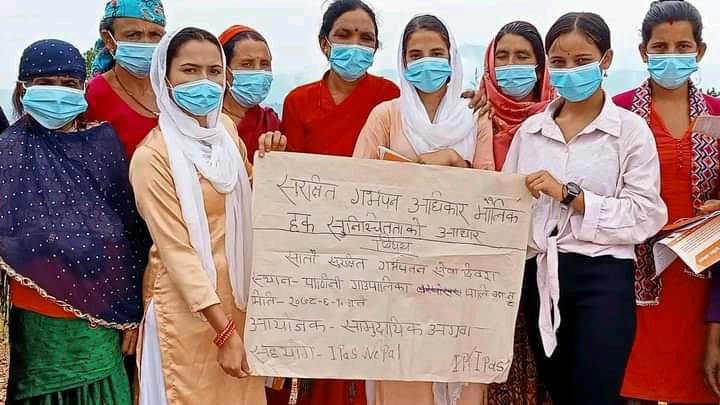 सुरक्षित गर्भपतन अधिकार मौलिक
हक सुनिश्चितताको आधार
विषय
सातौं सुरक्षित गर्भपतन सेवा दिवस
स्थान - पाणिनी गाउँपालिका
मिति - २०७८-६-१० गते
आयोजक - सामुदायिक अगुवा
सहयोग - IPas Nepal
IPas